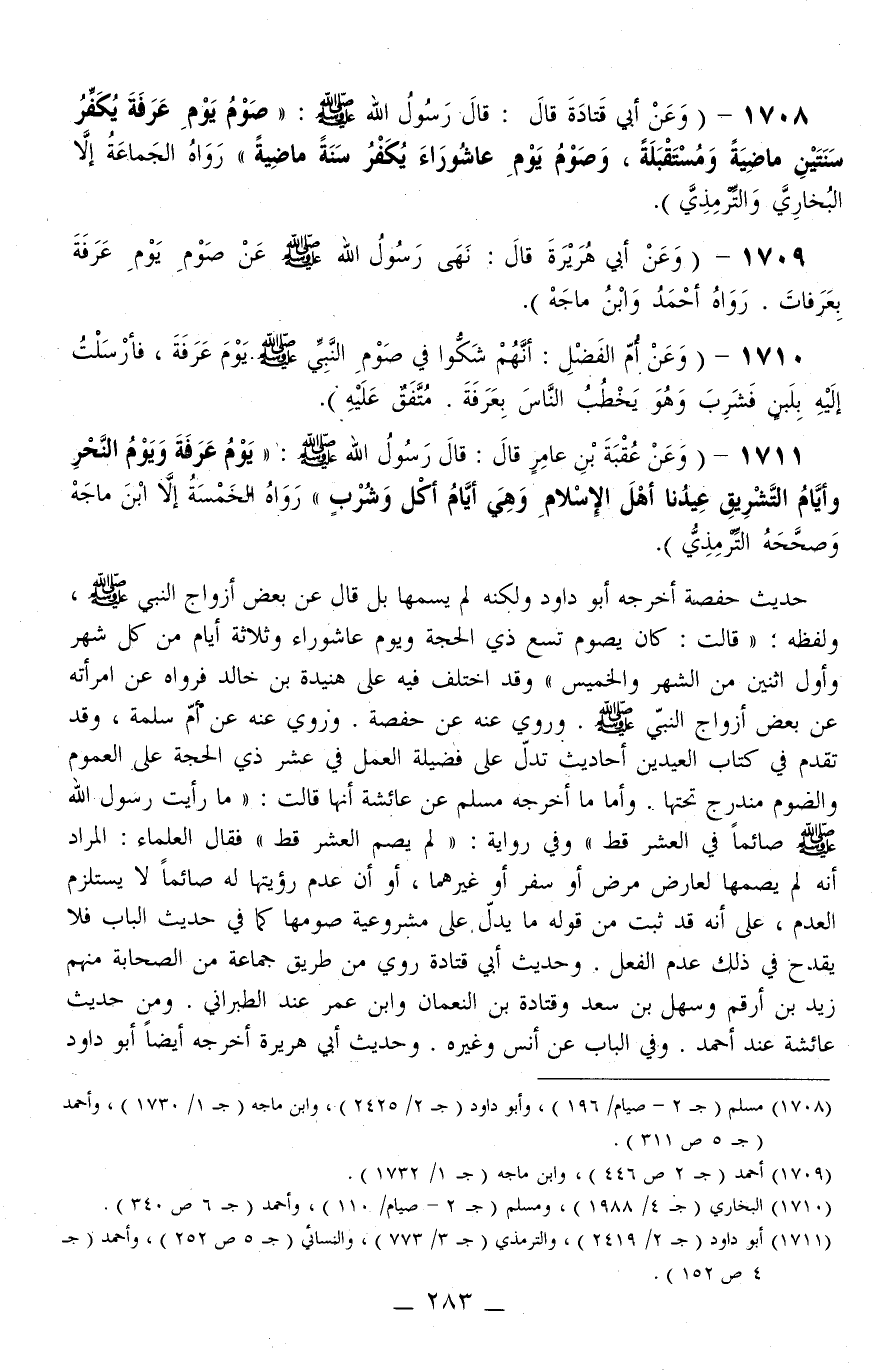 ١٧٠٨ - ( وَعَنْ أبي قَتادَةَ قالَ : قالَ رَسُولُ الله ﷺ : « صَوْمُ يَوْمِ عَرَفَةَ يُكَفِّرُ
سَنَتَيْنِ ماضِيَةً وَمُسْتَقْبَلَةً ، وَصَوْمُ يَوْمِ عاشُورَاءَ يُكَفِّرُ سَنَةً ماضِيةً » رَوَاهُ الجَماعَةُ إلَّا
البُخارِيَّ وَالتِّرْمِذِيَّ ).
١٧٠٩ - ( وَعَنْ أبي هُرَيْرَةَ قالَ : نَهَى رَسُولُ الله ﷺ عَنْ صَوْمِ يَوْمِ عَرَفَةَ
بِعَرَفاتَ . رَوَاهُ أحْمَدُ وَابْنُ ماجَهْ ).
١٧١٠ - ( وَعَنْ أُمّ الفَضْلِ : أنَّهُمْ شَكُّوا في صَوْمِ النَّبِيِّ ﷺ يَوْمَ عَرَفَةَ ، فأرْسَلْتُ
إلَيْهِ بِلَبنٍ فَشَرِبَ وَهُوَ يَخْطُبُ النَّاسَ بِعَرَفَةَ . مُتَّفَقٌ عَلَيْهِ ).
١٧١١ - ( وَعَنْ عُقْبَةَ بْنِ عامِرٍ قالَ : قالَ رَسُولُ الله ﷺ : « يَوْمُ عَرَفَةَ وَيَوْمُ النَّحْرِ
وأيَّامُ التَّشْرِيقِ عِيدُنا أهْلَ الإِسْلامِ وَهِيَ أيَّامُ أكْل وَشُرْبٍ » رَوَاهُ الخَمْسَةُ إلَّا ابْنَ ماجَهْ
وَصحَّحَهُ التِّرْمِذِيُّ ).
حديث حفصة أخرجه أبو داود ولكنه لم يسمها بل قال عن بعض أزواج النبي ﷺ ،
ولفظه : « قالت : كان يصوم تسع ذي الحجة ويوم عاشوراء وثلاثة أيام من كل شهر
وأول اثنين من الشهر والخميس » وقد اختلف فيه على هنيدة بن خالد فرواه عن امرأته
عن بعض أزواج النبيّ ﷺ . وروي عنه عن حفصة . وروي عنه عن أمّ سلمة ، وقد
تقدم في كتاب العيدين أحاديث تدلّ على فضيلة العمل في عشر ذي الحجة على العموم
والصوم مندرج تحتها . وأما ما أخرجه مسلم عن عائشة أنها قالت : « ما رأيت رسول الله
ﷺ صائماً في العشر قط » وفي رواية : « لم يصم العشر قط » فقال العلماء : المراد
أنه لم يصمها لعارض مرض أو سفر أو غيرهما ، أو أن عدم رؤيتها له صائماً لا يستلزم
العدم ، على أنه قد ثبت من قوله ما يدلّ على مشروعية صومها كما في حديث الباب فلا
يقدح في ذلك عدم الفعل . وحديث أبي قتادة روي من طريق جماعة من الصحابة منهم
زيد بن أرقم وسهل بن سعد وقتادة بن النعمان وابن عمر عند الطبراني . ومن حديث
عائشة عند أحمد . وفي الباب عن أنس وغيره . وحديث أبي هريرة أخرجه أيضاً أبو داود
(١٧٠٨) مسلم ( جـ ٢ - صيام/ ١٩٦ ) ، وأبو داود ( جـ ٢/ ٢٤٢٥ ) ، وابن ماجه ( جـ ١/ ١٧٣٠ ) ، وأحمد
( جـ ٥ ص ٣١١ ) .
(١٧٠٩) أحمد ( جـ ٢ ص ٤٤٦ ) ، وابن ماجه ( جـ ١/ ١٧٣٢ ) .
(١٧١٠) البخاري ( جـ ٤/ ١٩٨٨ ) ، ومسلم ( جـ ٢ - صيام/ ١١٠ ) ، وأحمد ( جـ ٦ ص ٣٤٠ ) .
(١٧١١) أبو داود ( جـ ٢/ ٢٤١٩ ) ، والترمذي ( جـ ٣/ ٧٧٣ ) ، والنسائي ( جـ ٥ ص ٢٥٢ ) ، وأحمد ( جـ
٤ ص ١٥٢ ) .
_ ٢٨٣ _